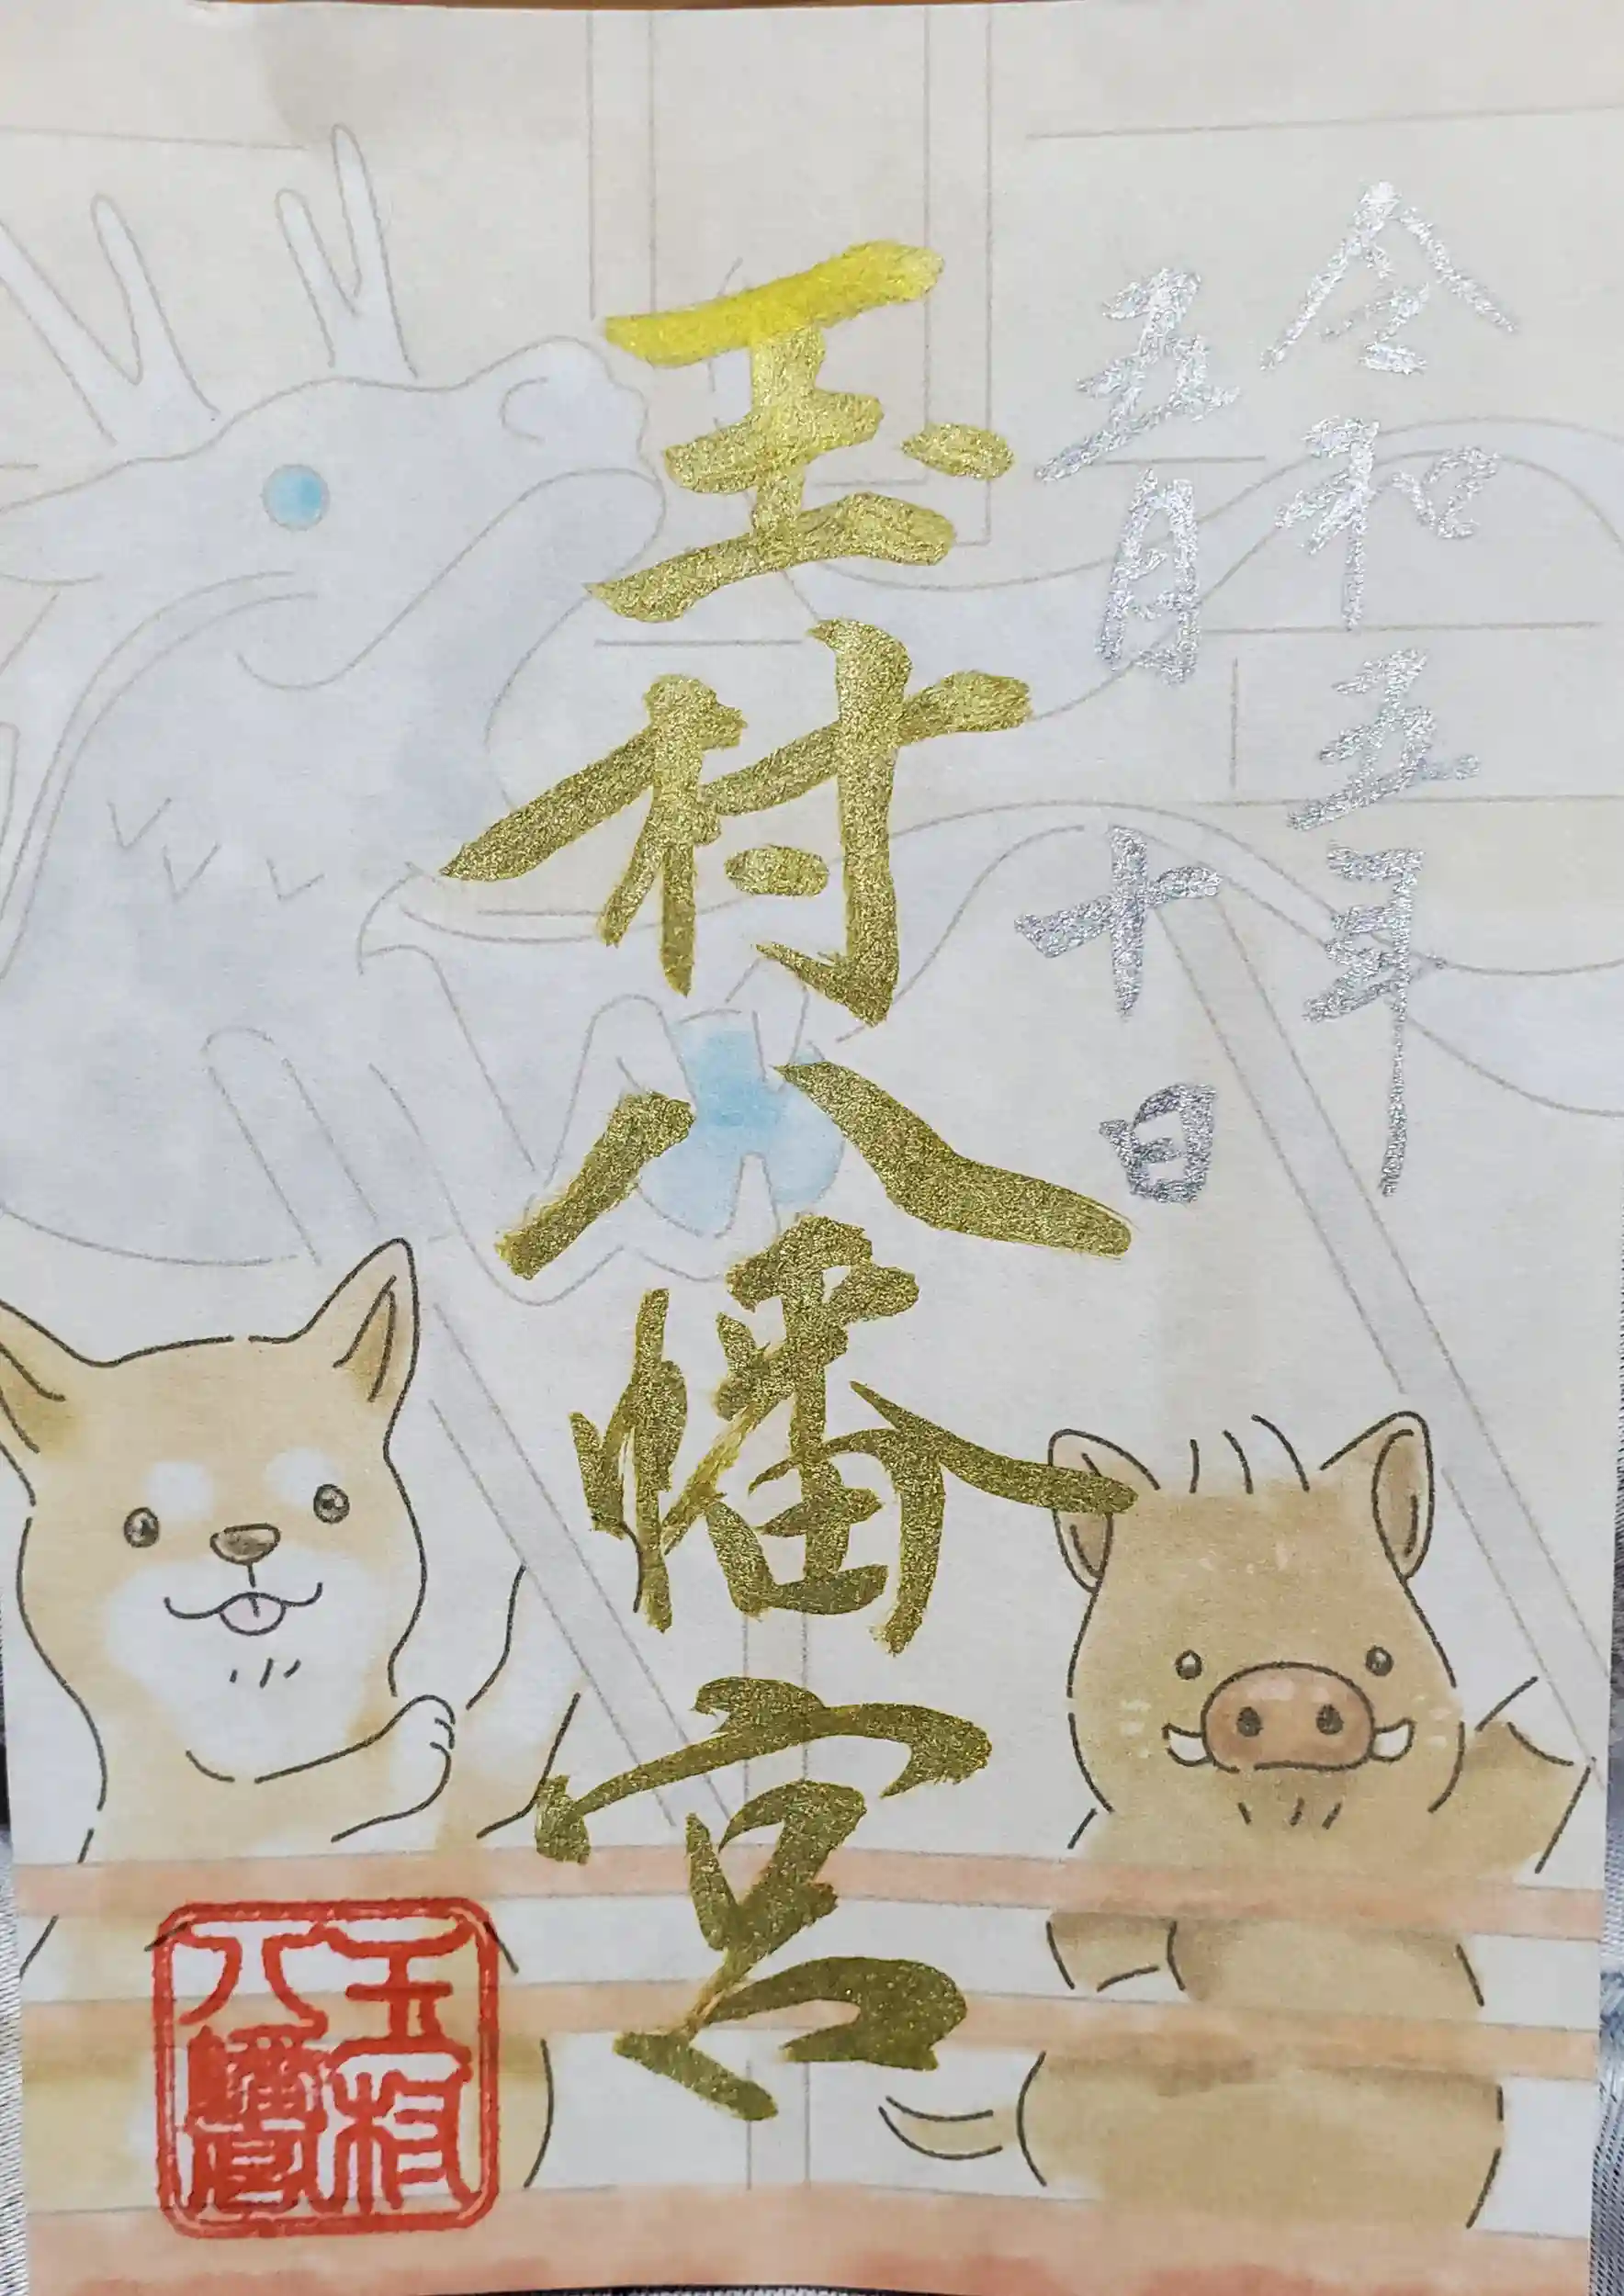 令和五年
五月十日
玉村八幡宮
玉村
八幡宮